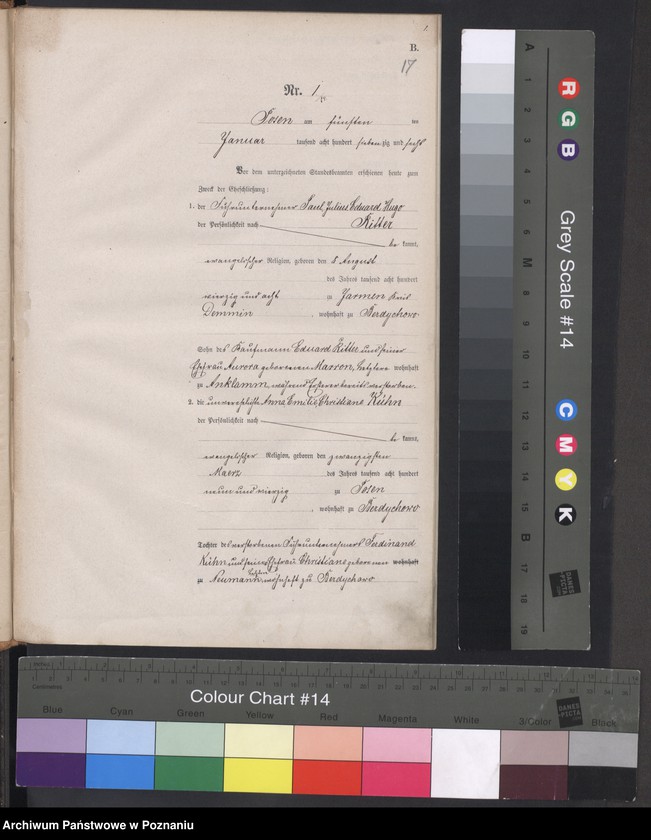 1.
B.
17
Nr. 1
Posen am fünften
Januar tausend acht hundert siebenzig und sechs
Vor dem unterzeichneten Standesbeamten erschienen heute zum
Zweck der Eheschließung:
1. der Fuhrunternehmer Paul Julius Eduard Hugo
Ritter
der Persönlichkeit nach
be kannt,
evangelischer Religion, geboren den 8 August
des Jahres tausend acht hundert
vierzig und acht zu Jarmen Kreis
Demmin, wohnhaft zu Berdychowo
Sohn des Kaufmann Eduard Ritter und seiner
Ehefrau Aurora geborenen Masson, Letztere wohnhaft
zu Anklamm, während Ersterer bereits verstorben.
2. die unverehelichte Anna Emilie Christiane Kühn
der Persönlichkeit nach
be kannt,
evangelischer Religion, geboren den zwanzigsten
Maerz des Jahres tausend acht hundert
neun und vierzig zu Posen
, wohnhaft zu Berdychowo
Tochter des verstorbenen Fuhrunternehmers Ferdinand
Kühn und seiner Ehefrau Christiane geborenen wohnhaft
zu Neumann, wohnhaft zu Berdychowo
A 1 2 3 4 5 6 M 8 9 10 11 12 13 14 15 B 17 18 19
R G B
Grey Scale #14
C M Y K
DANES
PICTA
.COM
Colour Chart #14
Blue Cyan Green Yellow Red Magenta White 3/Color Black
DANES
PICTA
.COM
Archiwum Państwowe w Poznaniu